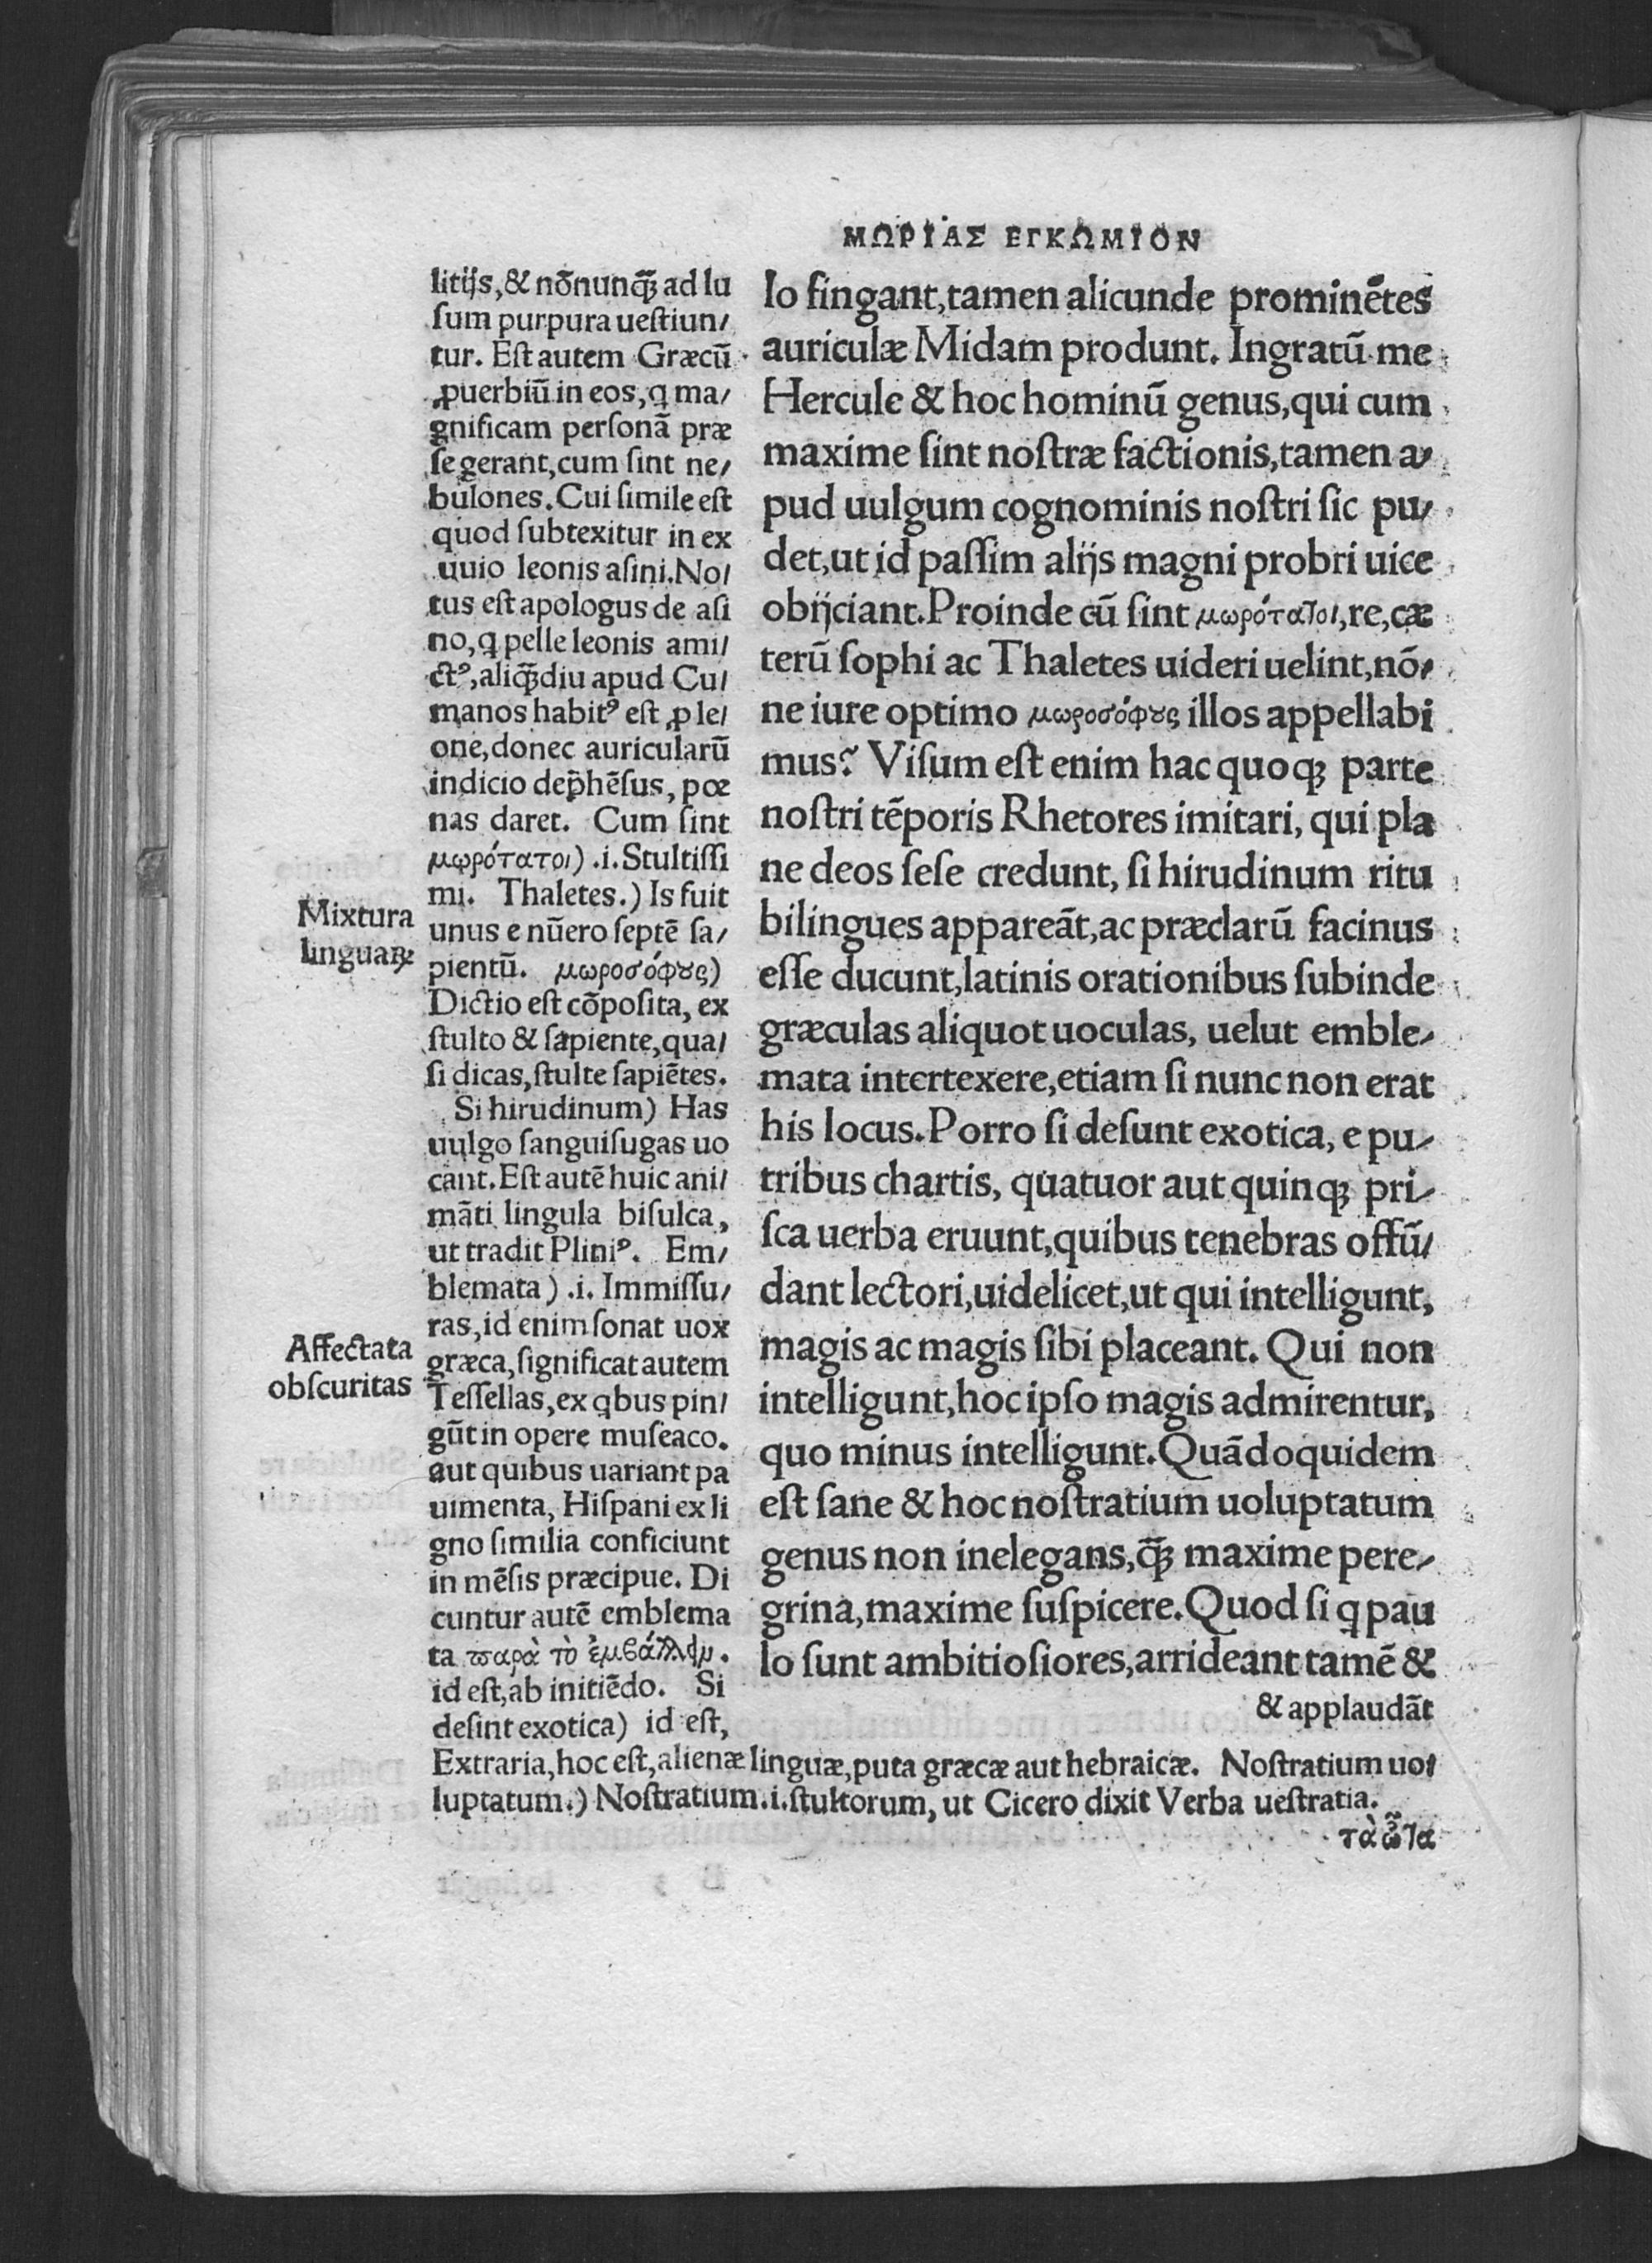 ΜΩΡΙΑΣ ΕΓΚΩΜΙΟΝ
litijs, & nõnunꝙ̃ ad lu
ſum purpura ueſtiun/
tur. Eſt autem Græcũ
ꝓuerbiũ in eos, q ma/
gnificam perſonã præ
ſe gerant, cum ſint ne/
bulones. Cui ſimile eſt
quod ſubtexitur in ex
uuio leonis aſini. No/
tus eſt apologus de aſi
no, q pelle leonis ami/
ctꝰ, aliꝙ̃diu apud Cu/
manos habitꝰ eſt ꝓ le/
one, donec auricularũ
indicio dep̃hẽſus, pœ
nas daret. Cum ſint
μωρότατοι) .i. Stultiſſi
mi. Thaletes.) Is fuit
unus e nũero ſeptẽ ſa/
pientũ. μωροσόφȣς)
Dictio eſt cõpoſita, ex
ſtulto & ſapiente, qua/
ſi dicas, ſtulte ſapiẽtes.
Si hirudinum) Has
uulgo ſanguiſugas uo
cant. Eſt autẽ huic ani/
mãti lingula biſulca,
ut tradit Pliniꝰ. Em/
blemata) .i. Immiſſu/
ras, id enim ſonat uox
græca, ſignificat autem
Teſſellas, ex qbus pin/
gũt in opere muſeaco.
aut quibus uariant pa
uimenta, Hiſpani ex li
gno ſimilia conficiunt
in mẽſis præcipue. Di
cuntur autẽ emblema
ta παρὰ τὸ ἐμβάλλειν.
id eſt, ab initiẽdo. Si
deſint exotica) id eſt,
Extraria, hoc eſt, alienæ linguæ, puta græcæ aut hebraicæ. Noſtratium uo/
luptatum.) Noſtratium .i. ſtultorum, ut Cicero dixit Verba ueſtratia.
Mixtura
linguaꝝ
Affectata
obſcuritas
lo fingant, tamen alicunde prominẽtes
auriculæ Midam produnt. Ingratũ me
Hercule & hoc hominũ genus, qui cum
maxime ſint noſtræ factionis, tamen a/
pud uulgum cognominis noſtri ſic pu/
det, ut id paſſim alijs magni probri uice
obijciant. Proinde cũ ſint μωρότατοι, re, cæ
terũ ſophi ac Thaletes uideri uelint, nõ/
ne iure optimo μωροσόφȣς illos appellabi
mus? Viſum eſt enim hac quoqꝫ parte
noſtri tẽporis Rhetores imitari, qui pla
ne deos ſeſe credunt, ſi hirudinum ritu
bilingues appareãt, ac præclarũ facinus
eſſe ducunt, latinis orationibus ſubinde
græculas aliquot uoculas, uelut emble/
mata intertexere, etiam ſi nunc non erat
his locus. Porro ſi deſunt exotica, e pu/
tribus chartis, quatuor aut quinqꝫ pri/
ſca uerba eruunt, quibus tenebras offũ/
dant lectori, uidelicet, ut qui intelligunt,
magis ac magis ſibi placeant. Qui non
intelligunt, hoc ipſo magis admirentur,
quo minus intelligunt. Quãdoquidem
eſt ſane & hoc noſtratium uoluptatum
genus non inelegans, ꝙ̃ maxime pere/
grina, maxime ſuſpicere. Quod ſi q pau
lo ſunt ambitioſiores, arrideant tamẽ &
& applaudãt
τὰ ὦτα